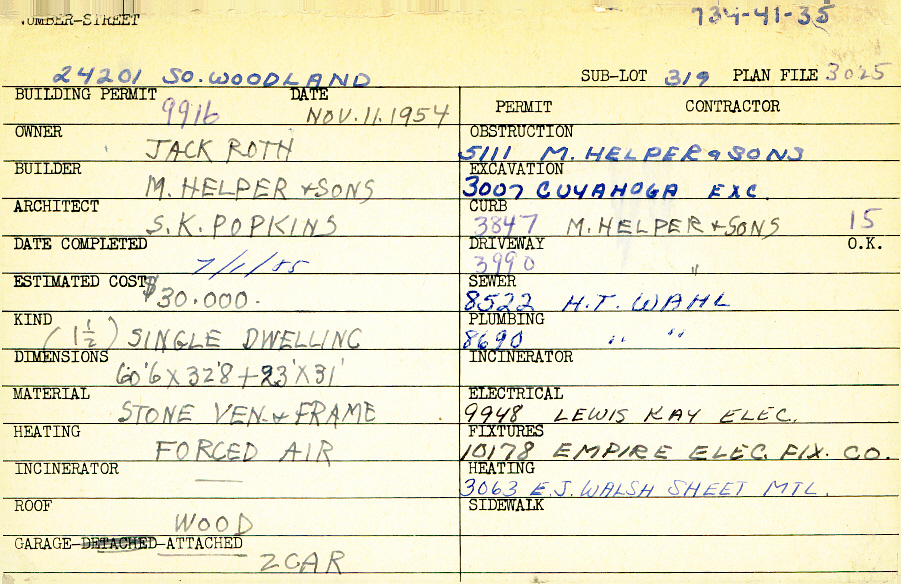 NUMBER-STREET 734-41-35
24201 SO. WOODLAND SUB-LOT 319 PLAN FILE 3025
BUILDING PERMIT DATE PERMIT CONTRACTOR
9916 NOV. 11. 1954
OWNER OBSTRUCTION
JACK ROTH 5111 M. HELPER & SONS
BUILDER EXCAVATION
M. HELPER + SONS 3007 CUYAHOGA EXC.
ARCHITECT CURB
S. K. POPKINS 3847 M. HELPER + SONS 15
DATE COMPLETED DRIVEWAY O.K.
7/1/55 3990 "
ESTIMATED COST SEWER
$30.000. 8522 H.T. WAHL
KIND PLUMBING
(1 1/2) SINGLE DWELLING 8690 " "
DIMENSIONS INCINERATOR
60'6 X 32'8 + 23' X 31'
MATERIAL ELECTRICAL
STONE VEN. & FRAME 9948 LEWIS KAY ELEC.
HEATING FIXTURES
FORCED AIR 10178 EMPIRE ELEC. FIX. CO.
INCINERATOR HEATING
— 3063 E.J. WALSH SHEET MTL.
ROOF SIDEWALK
WOOD
GARAGE-DETACHED-ATTACHED
2 CAR